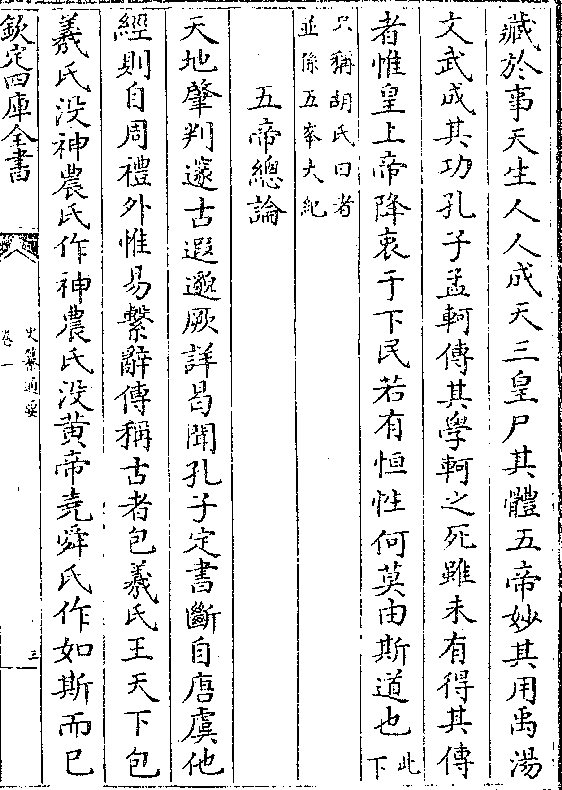 藏於事天生人人成天三皇尸其體五帝妙其用禹湯
文武成其功孔子孟軻傳其學軻之死雖未有得其傳
者惟皇上帝降衷于下民若有恒性何莫由斯道也此下
只稱胡氏曰者
並係五峯大紀
五帝總論
天地肇判邃古遐邈厥詳曷聞孔子定書斷自唐虞他
經則自周禮外惟易繫辭傳稱古者包羲氏王天下包
羲氏没神農氏作神農氏没黄帝堯舜氏作如斯而已
欽定四庫全書
史纂通要
卷一
三